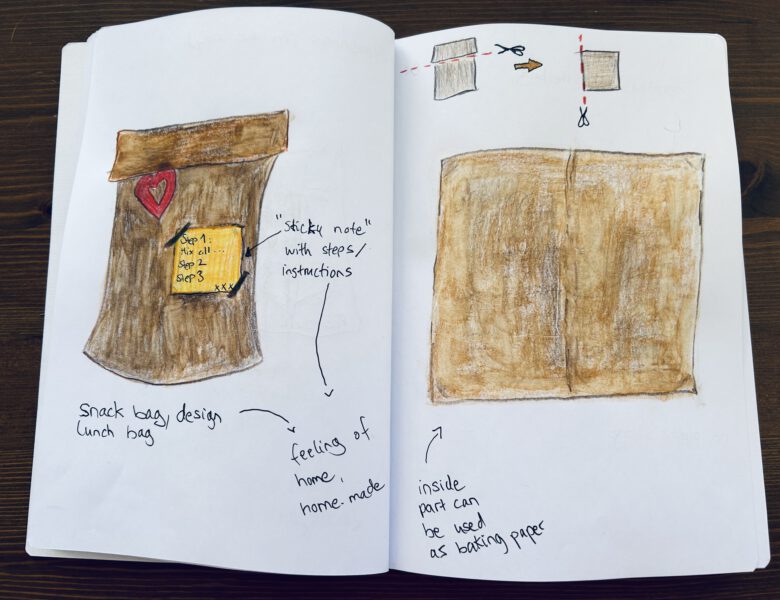 Step 1:
Mix all...
Step 2
Step 3
xxx
"sticky note"
with steps/
instructions
Snack bag, design
Lunch bag
feeling of
home,
home-made
inside
part can
be used
as baking paper